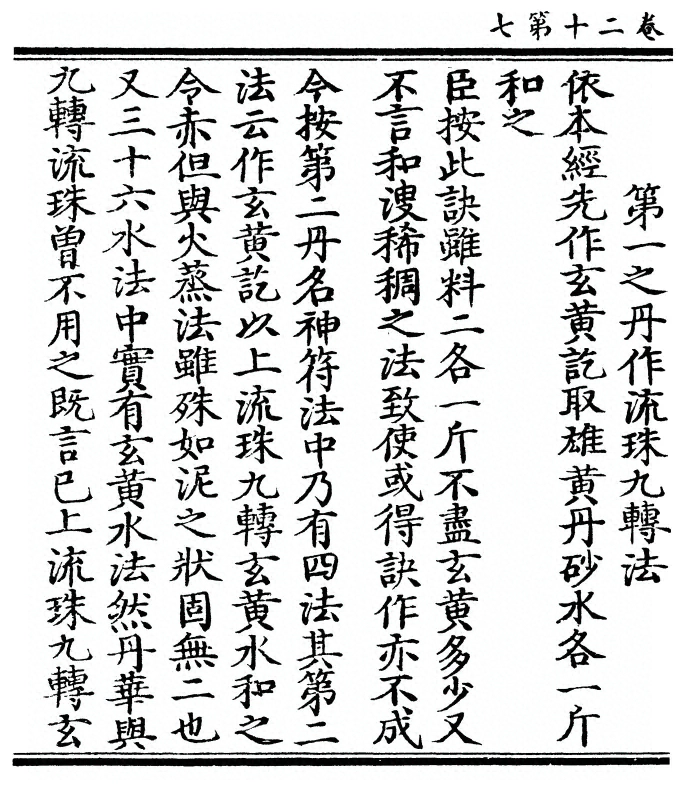 卷二十第七
第一之丹作流珠九轉法
依本經先作玄黄訖取雄黄丹砂水各一斤
和之
臣按此訣雖料二各一斤不盡玄黄多少又
不言和溲稀稠之法致使或得訣作亦不成
今按第二丹名神符法中乃有四法其第二
法云作玄黄訖以上流珠九轉玄黄水和之
令赤但與火蒸法雖殊如泥之狀固無二也
又三十六水法中實有玄黄水法然丹華與
九轉流珠曾不用之既言已上流珠九轉玄